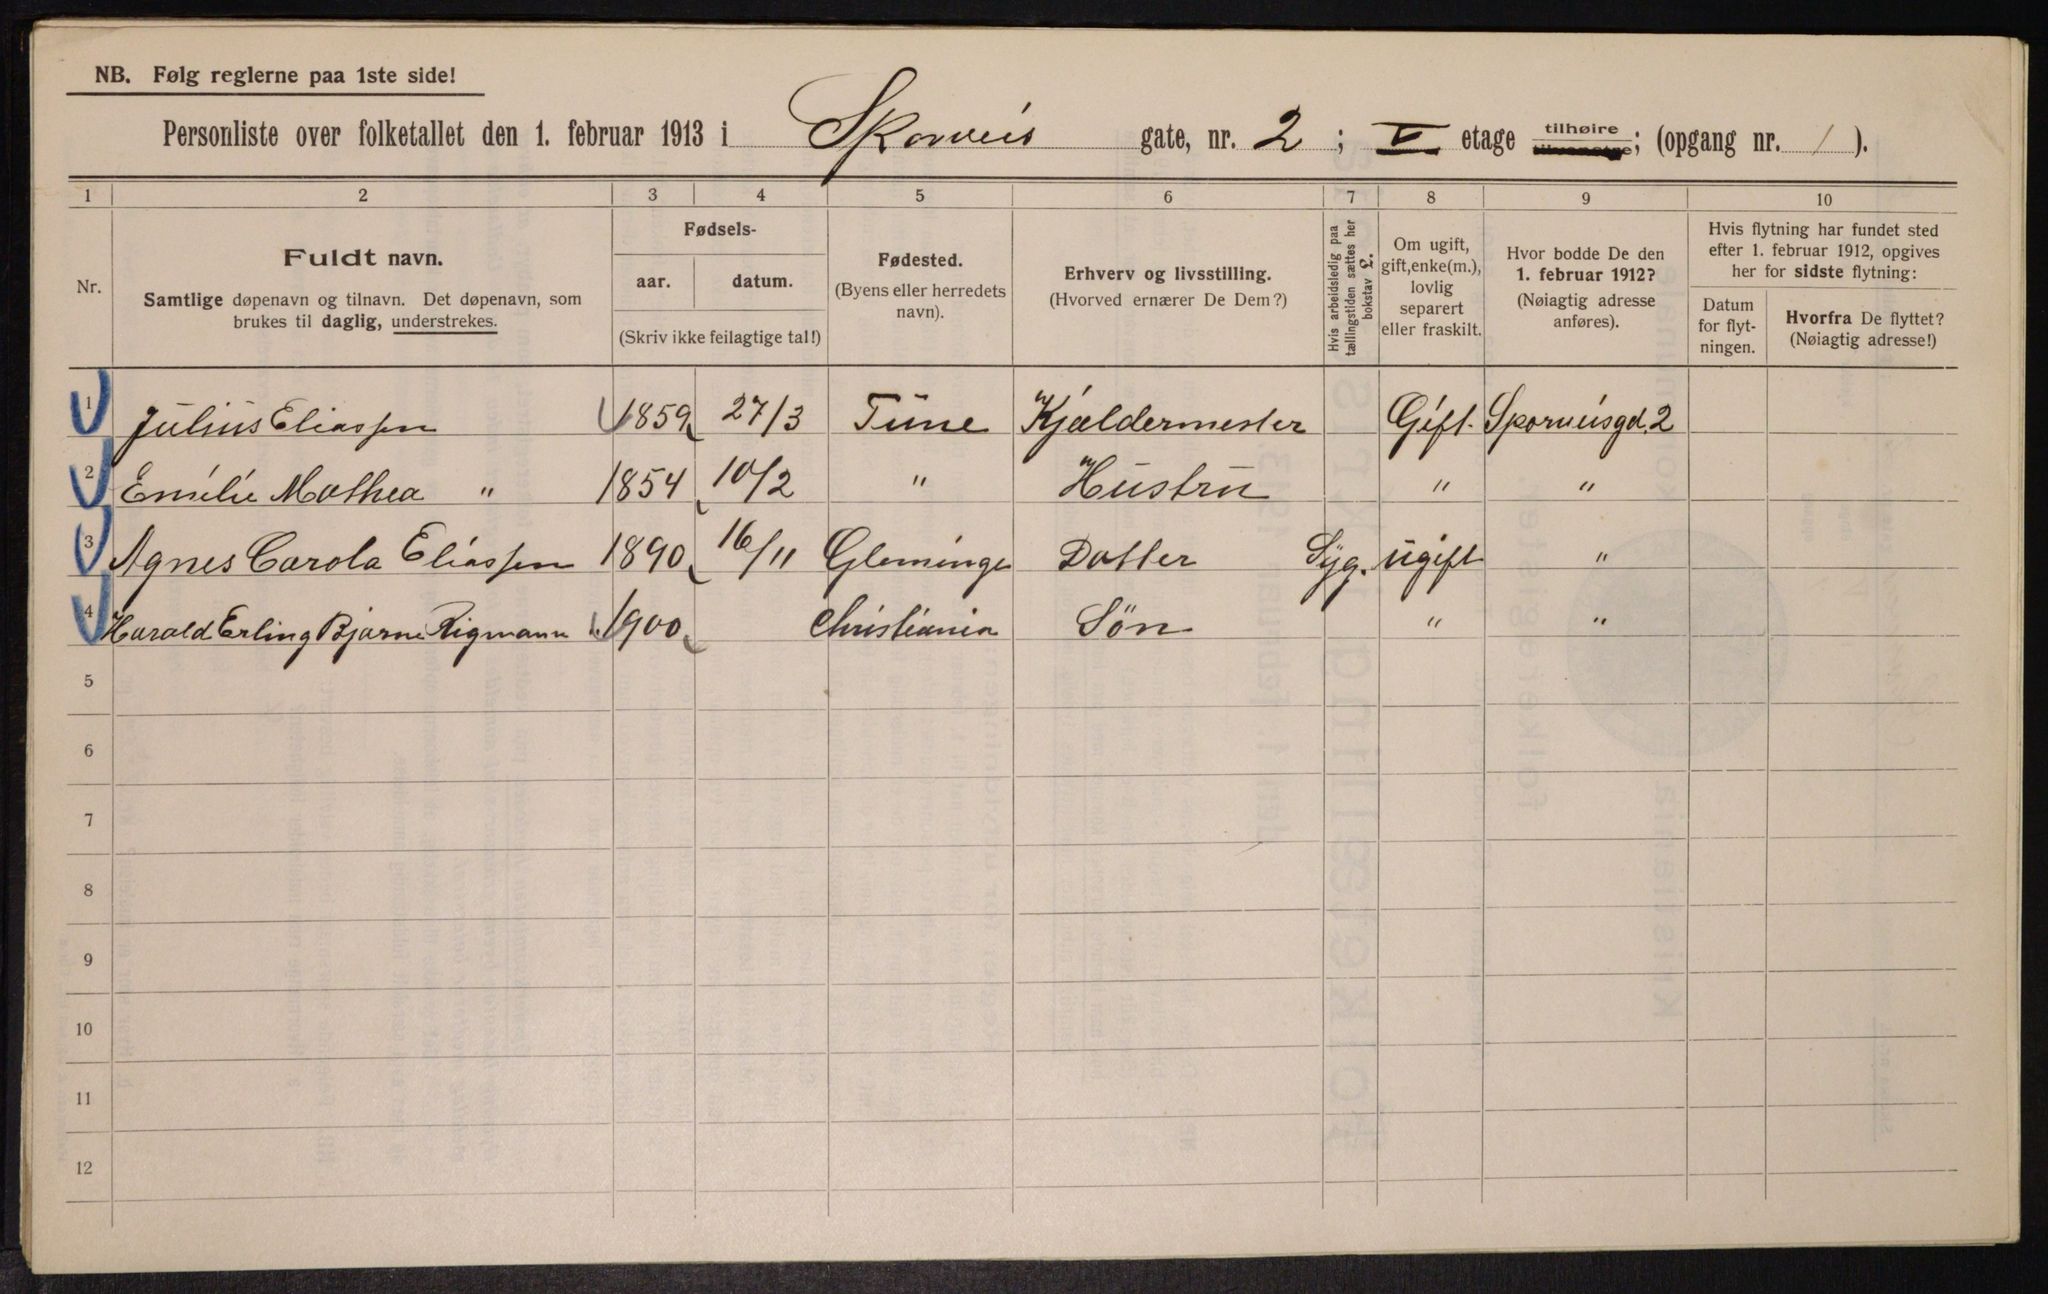 NB. Følg reglerne paa 1ste side!
Personliste over folketallet den 1. februar 1913 i Sporveis gate, nr. 2 ; V etage tilhøire tilvenstre; (opgang nr. 1 ).
1 2 3 4 5 6 7 8 9 10
Nr.
Fuldt navn.
Samtlige døpenavn og tilnavn. Det døpenavn, som
brukes til daglig, understrekes.
Fødsels-
aar. datum.
(Skriv ikke feilagtige tal!)
Fødested.
(Byens eller herredets
navn).
Erhverv og livsstilling.
(Hvorved ernærer De Dem?)
Hvis arbeidsledig paa
tællingstiden sættes her
bokstav L.
Om ugift,
gift, enke(m.),
lovlig
separert
eller fraskilt.
Hvor bodde De den
1. februar 1912?
(Nøiagtig adresse
anføres).
Hvis flytning har fundet sted
efter 1. februar 1912, opgives
her for sidste flytning:
Datum
for flyt-
ningen.
Hvorfra De flyttet?
(Nøiagtig adresse!)
1 Julius Eliassen 1859 27/3 Tune Kjældermester Gift. Sporveisgd. 2
2 Emilie Mathea " 1854 10/2 " Hustru " "
3 Agnes Carola Eliassen 1890 16/11 Gleminge Datter Syg. ugift "
4 Harald Erling Bjarne Rigmann " 1900 Christiania Sön " "
5
6
7
8
9
10
11
12